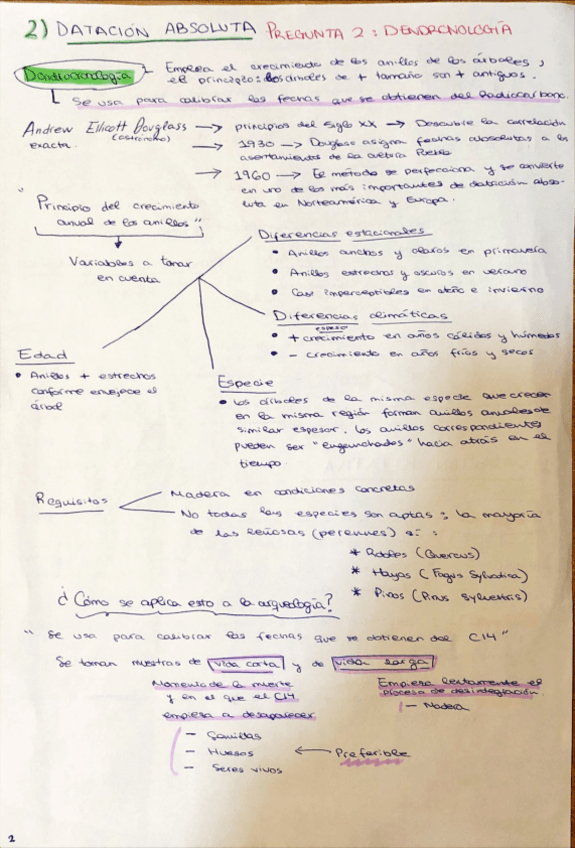 2) DATACIÓN ABSOLUTA PREGUNTA 2: DENDRONOLOGÍA
Dendrocronología - Emplea el crecimiento de los anillos de los árboles,
el principio: los árboles de + tamaño son + antiguos.
Se usa para calibrar las fechas que se obtienen del Radiocarbono.
Andrew Ellicott Douglass → principios del Siglo XX → Descubre la correlación
exacta. (astrónomo)
→ 1930 → Douglass asigna fechas absolutas a los
asentamientos de la cultura Pueblo
→ 1960 → El método se perfecciona y se convierte
en uno de los más importantes de datación abso-
luta en Norteamérica y Europa.
"Principio del crecimiento
anual de los anillos"
Variables a tomar
en cuenta
Diferencias estacionales
• Anillos anchos y claros en primavera
• Anillos estrechos y oscuros en verano
• Casi imperceptibles en otoño e invierno
Diferencias climáticas
espesor
• + crecimiento en años cálidos y húmedos
• - crecimiento en años fríos y secos
Edad
• Anillos + estrechos
conforme envejece el
árbol
Especie
• Los árboles de la misma especie que crecen
en la misma región forman anillos anuales de
similar espesor. Los anillos correspondientes
pueden ser "enganchados" hacia atrás en el
tiempo.
Requisitos
Madera en condiciones concretas
No todas las especies son aptas; la mayoría
de las leñosas (perennes) sí:
* Robles (Quercus)
* Hayas (Fagus Sylvatica)
* Pinos (Pinus Sylvestris)
¿Cómo se aplica esto a la arqueología?
"Se usa para calibrar las fechas que se obtienen del C14"
Se toman muestras de vida corta y de vida larga
Momento de la muerte
y en el que el C14
empieza a desaparecer
- Semillas
- Huesos ← Preferible
- Seres vivos
Empieza lentamente el
proceso de desintegración.
- Madera
2